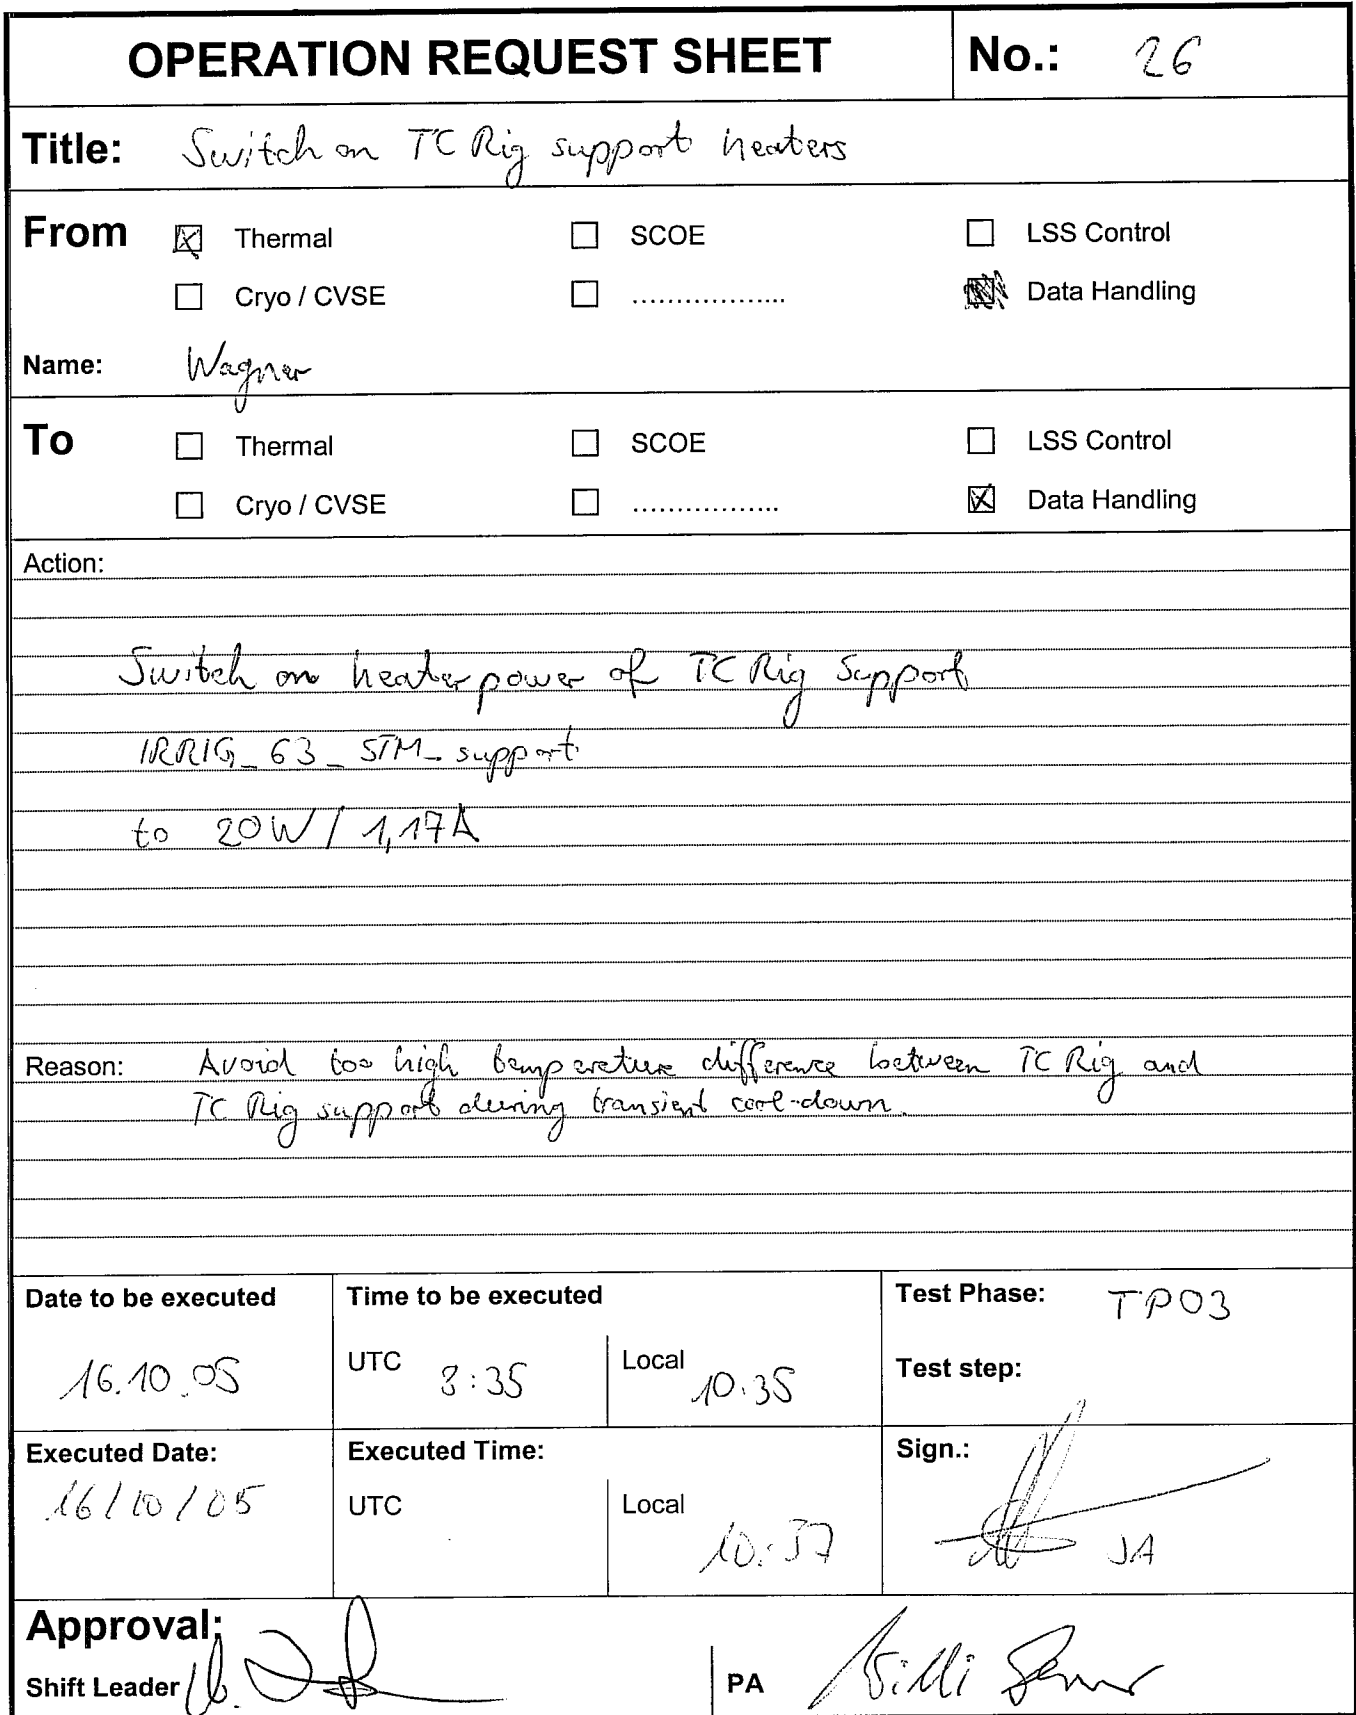 OPERATION REQUEST SHEET No.: 26
Title: Switch on TC Rig support heaters
From Thermal SCOE LSS Control
Cryo / CVSE .................. Data Handling
Name: Wagner
To Thermal SCOE LSS Control
Cryo / CVSE ................. Data Handling
Action:
Switch on heater power of TC Rig Support
IRRIG_63_STM_support
to 20W / 1,17A
Reason: Avoid too high temperature difference between TC Rig and
TC Rig support during transient cool-down.
Date to be executed Time to be executed Test Phase: TP03
16.10.05 UTC 8:35 Local 10:35 Test step:
Executed Date: Executed Time: Sign.:
16/10/05 UTC Local 10:37 JA
Approval:
Shift Leader PA Willi